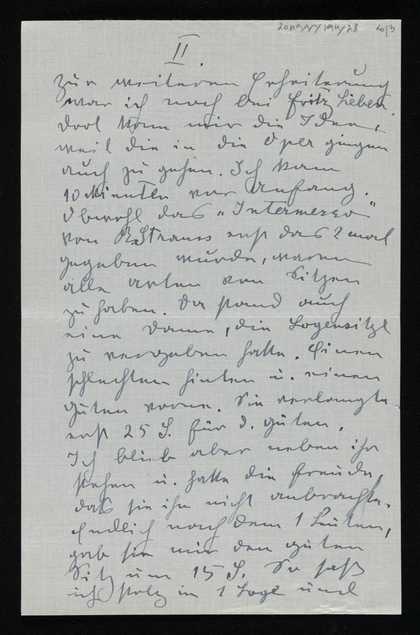 II.
zur weiteren Erheiterung
war ich noch bei Fritz Lieben
dort kam mir die Idee,
weil die in die Oper gingen
auch zu gehen. Ich kam
10 Minuten vor Anfang.
Obwohl das „Intermezzo"
von R. Strauss erst das 2 mal
gegeben wurde, waren
alle Arten von Sitzen
zu haben. Da stand auch
eine Dame, die Logensitze
zu vergeben hatte. Einen
schlechten hinten u. einen
guten vorne. Sie verlangte
erst 25 S. für d. guten.
Ich blieb aber neben ihr
stehen u. hatte die Freude,
daß sie ihn nicht anbrachte.
Endlich nach dem 1 Läuten,
gab sie mir den guten
Sitz um 15 S. So saß
ich stolz in 1 Loge und